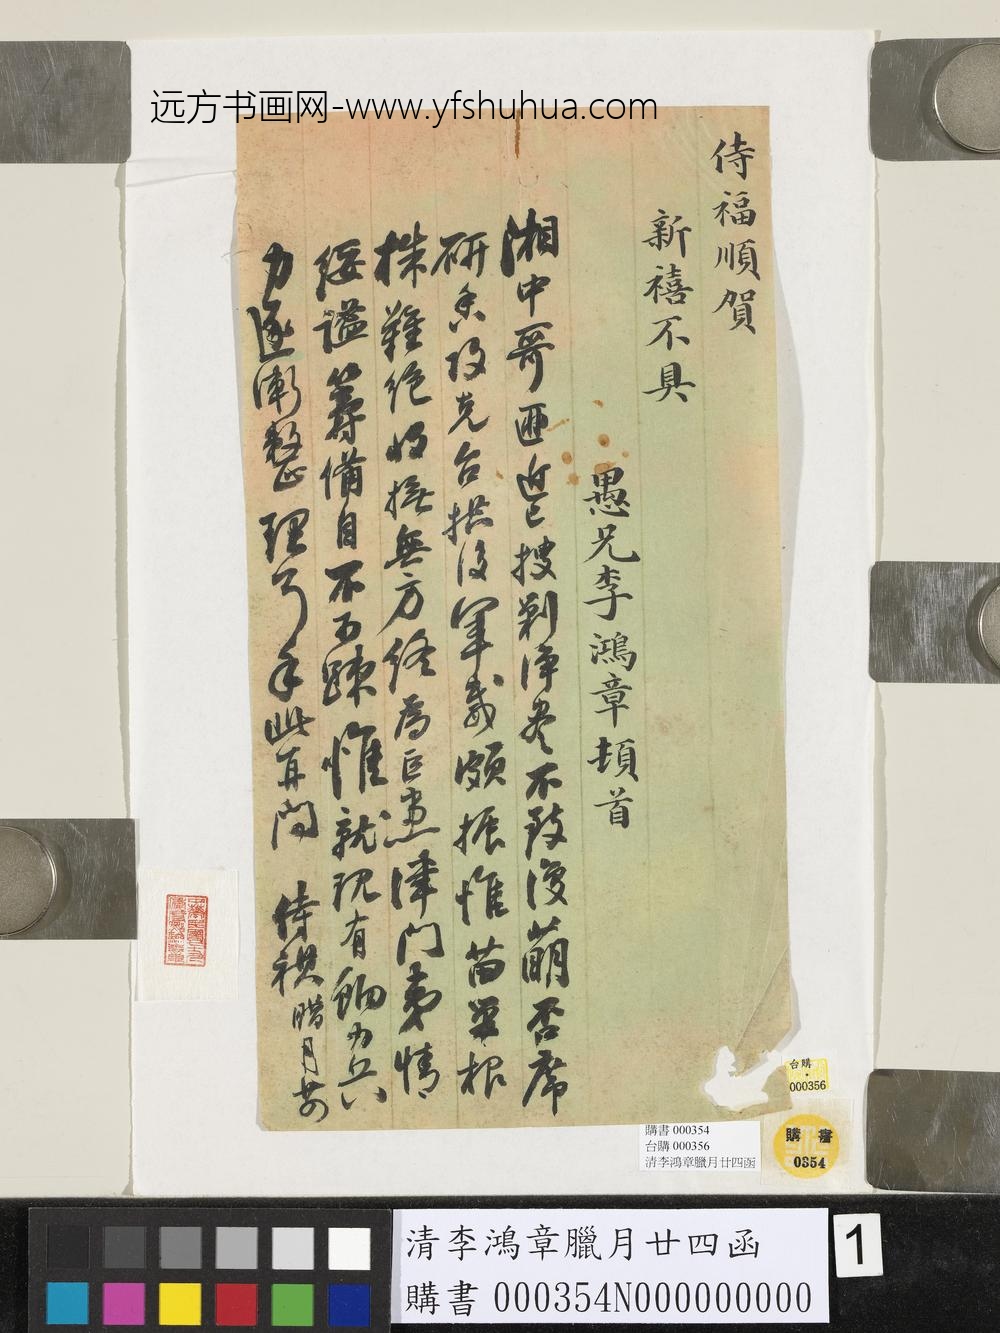 远方书画网-www.yfshuhua.com
侍福順賀
新禧不具
愚兄李鴻章頓首
湘中哥匪近已搜剿淨盡不致復萌否席
研香攻克台拱後軍威頗振惟苗巢根
株難絕收撫無方終為巨患津門夷情
綏謐籌備自不可疎惟就現有餉力兵
力逐漸整理了手此再問
侍祺臘月廿四
台購
000356
購書 000354
台購 000356
清李鴻章臘月廿四函
購書
0354
清李鴻章臘月廿四函
購書 000354N000000000
1